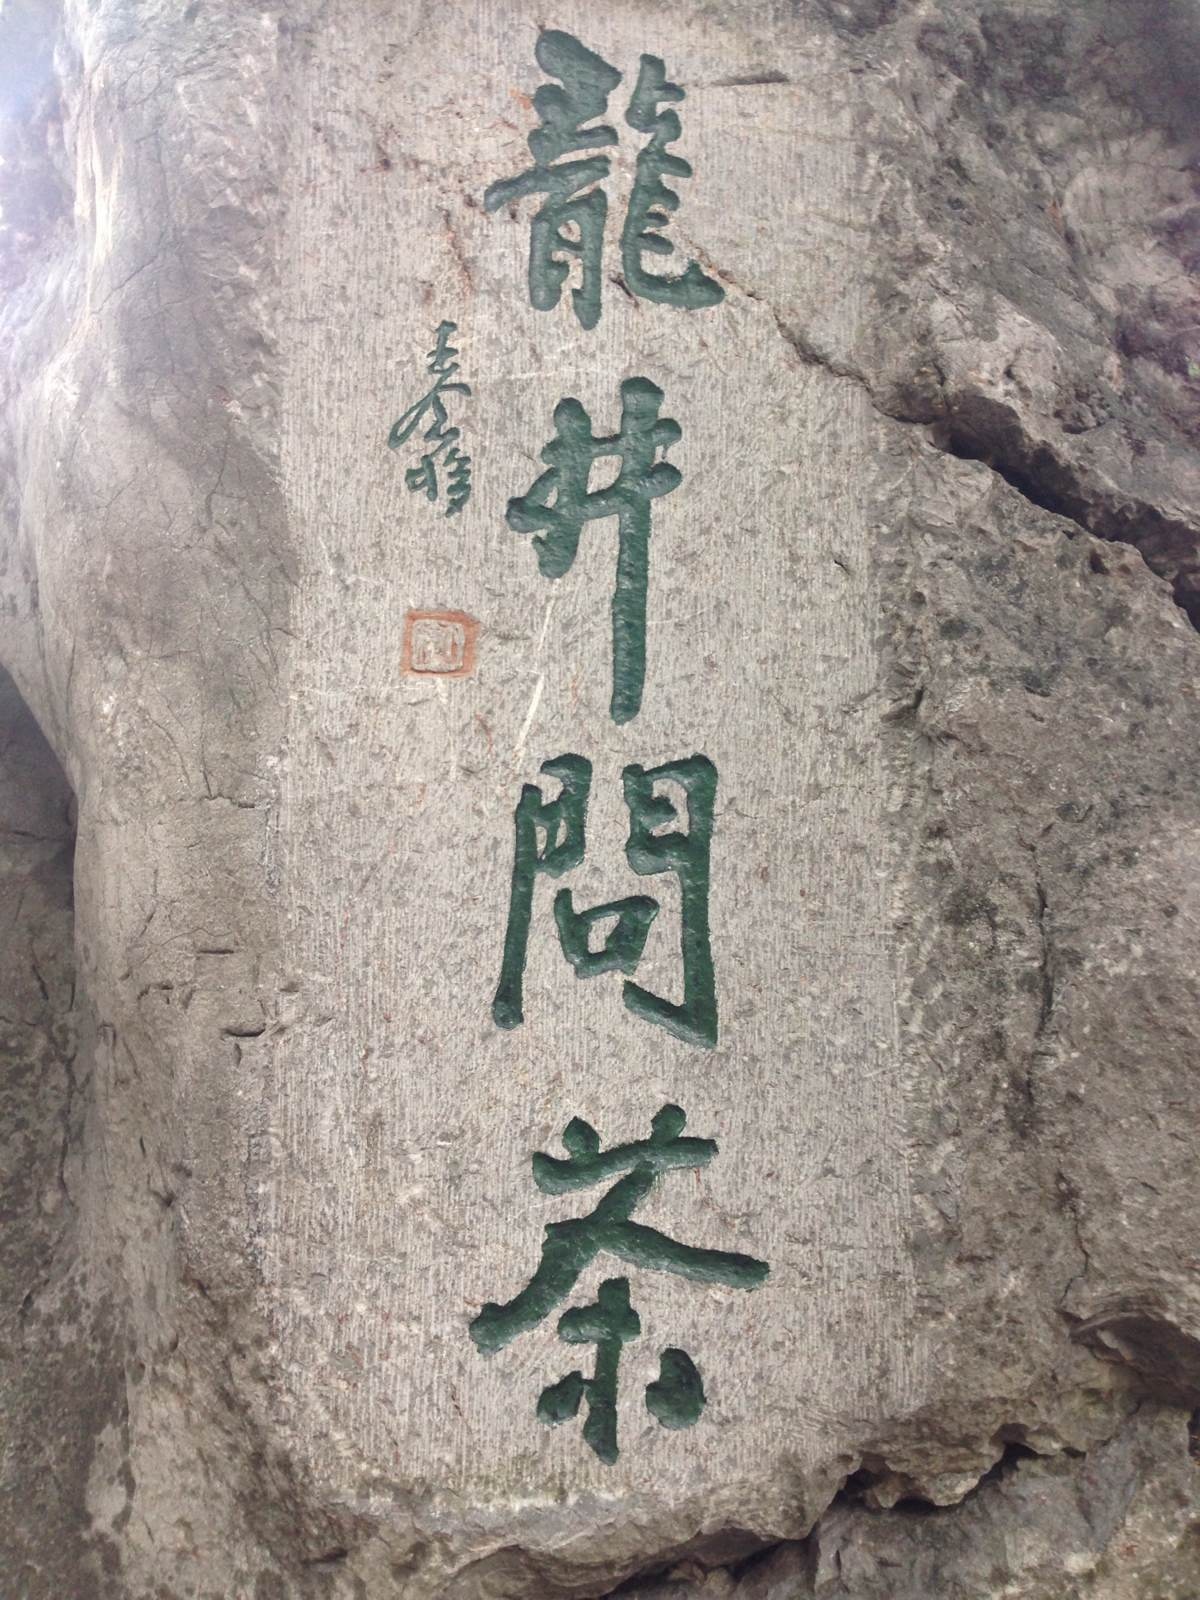 龍井問茶